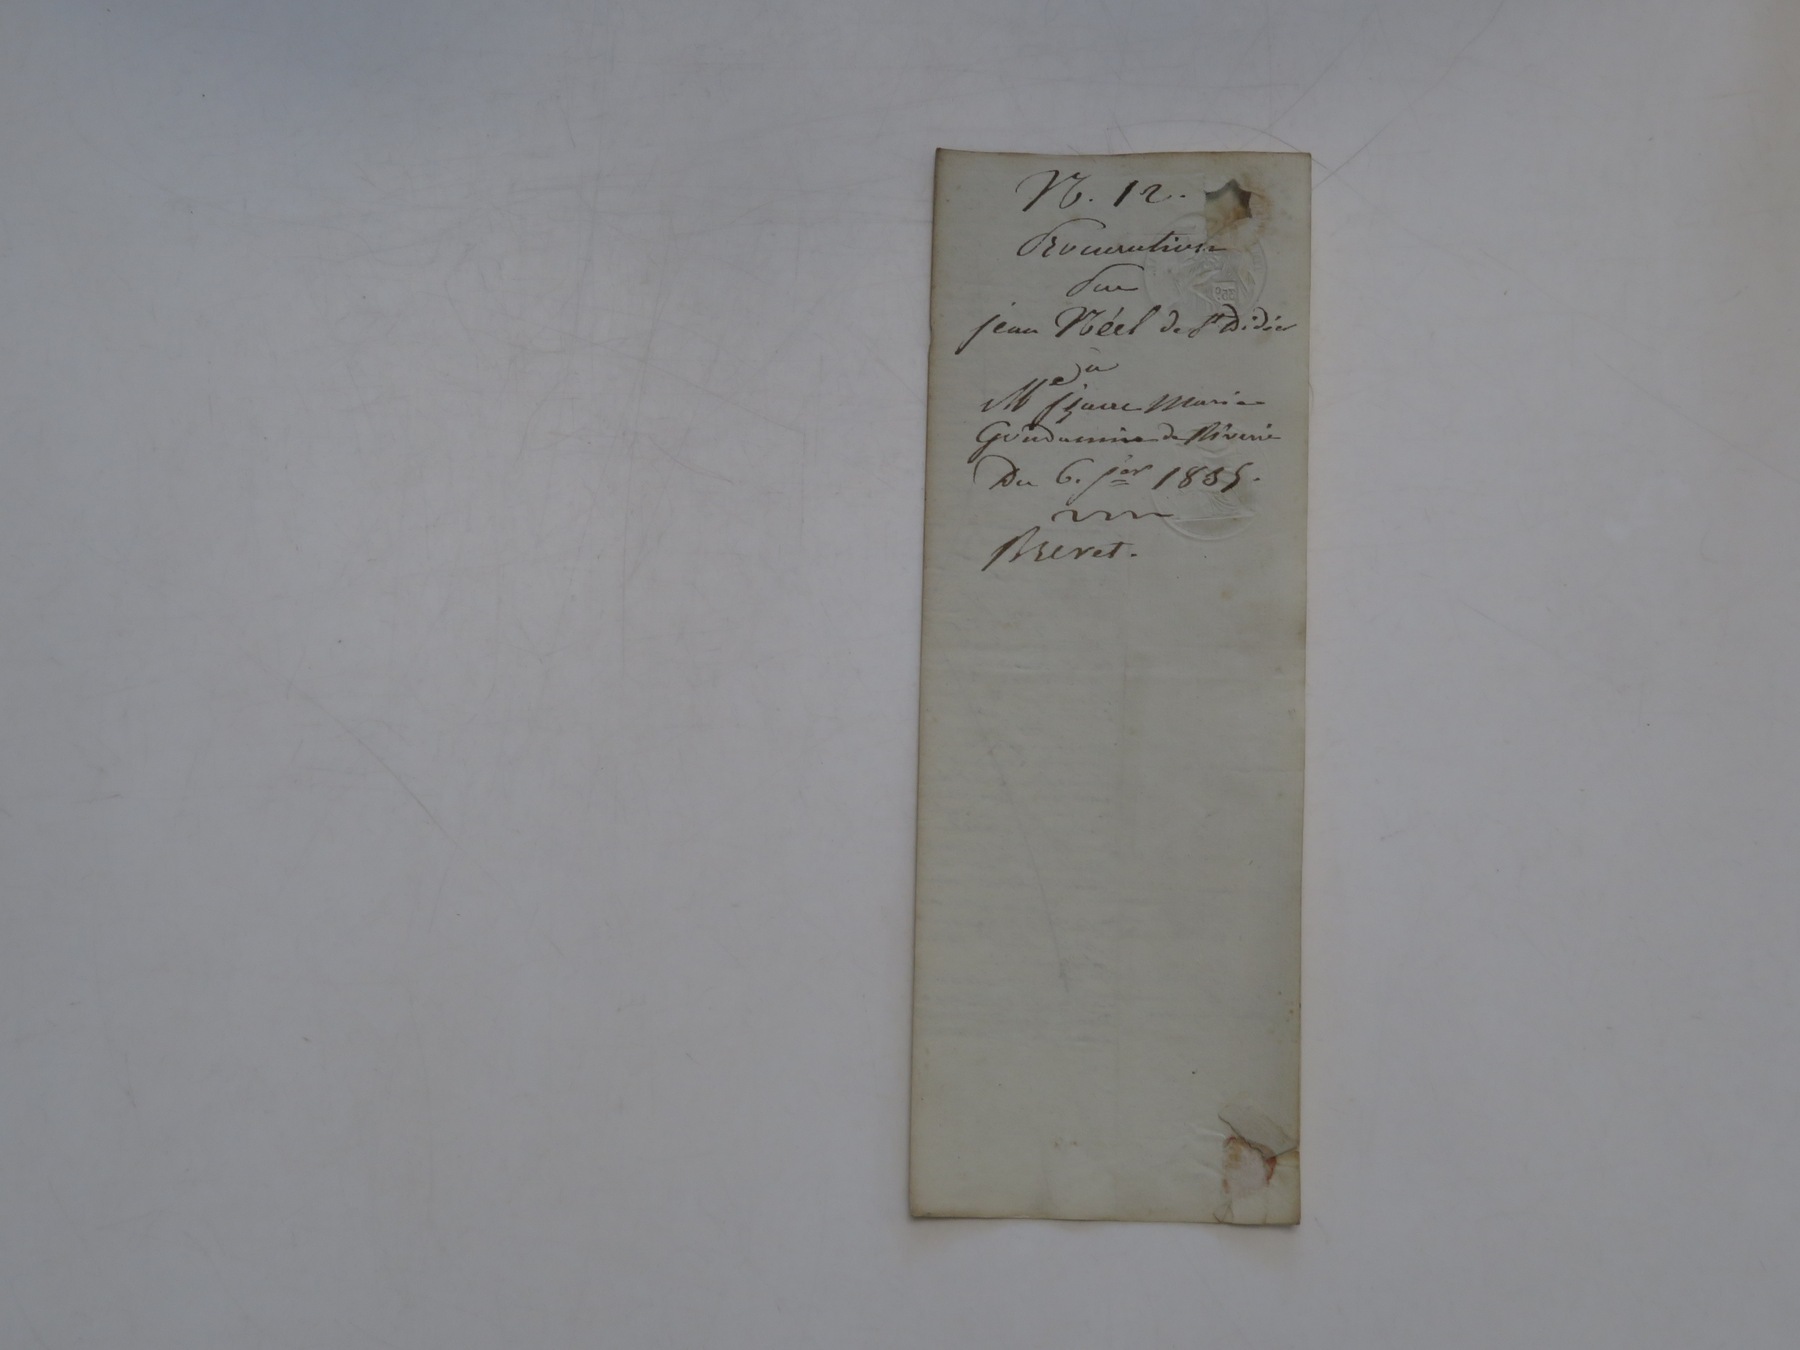 N. 12.
Procuration
Par
jean Néel de St Didier
à
Me pierre Marie
de Riverie
Du 6. jer 1835.
Brevet.